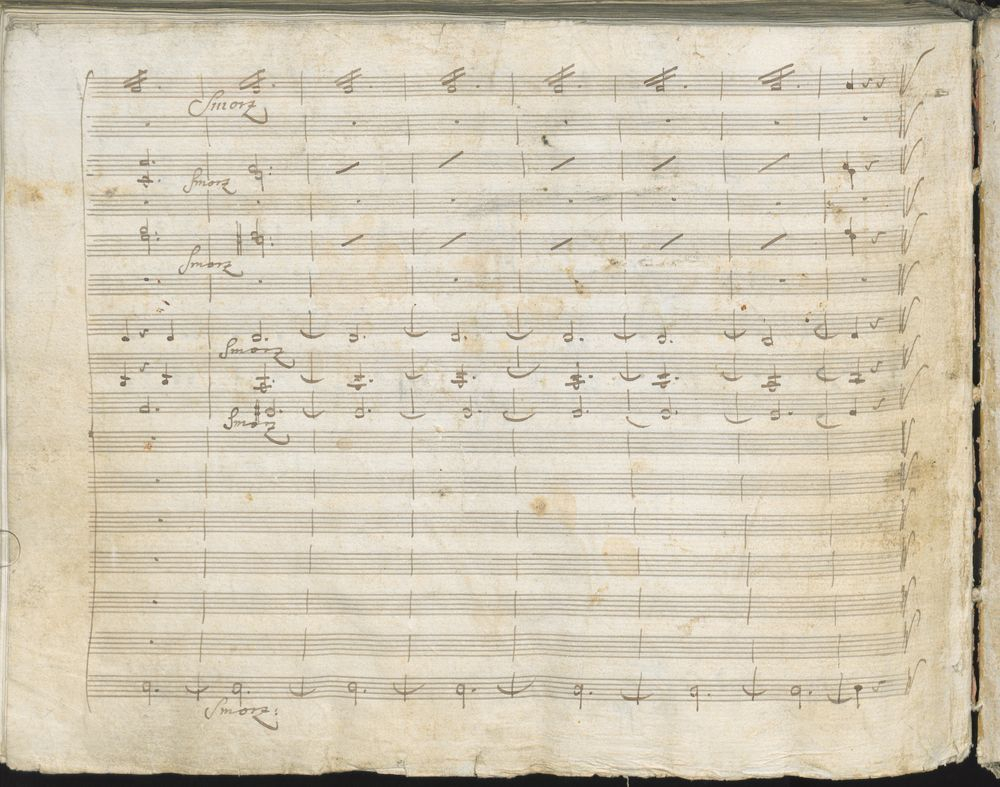 Smorz
Smorz
Smorz
Smorz
Smorz
Smorz: